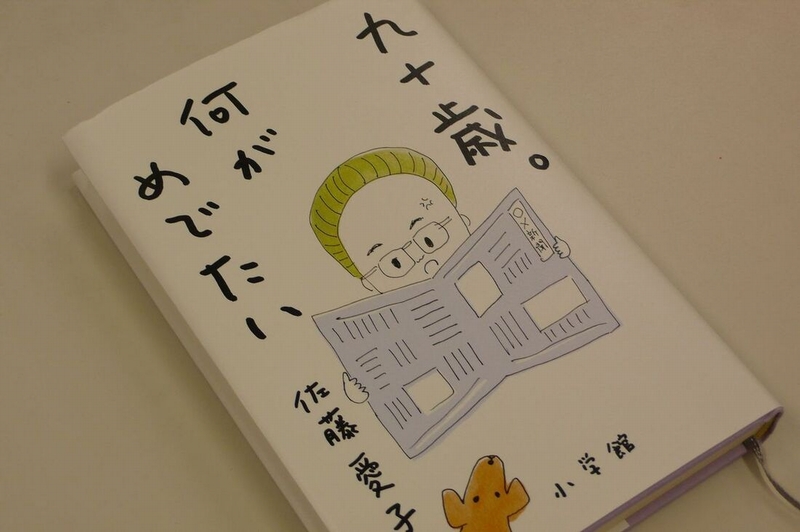 九十歳。
何が
めでたい
○×新聞
佐藤愛子
小学館